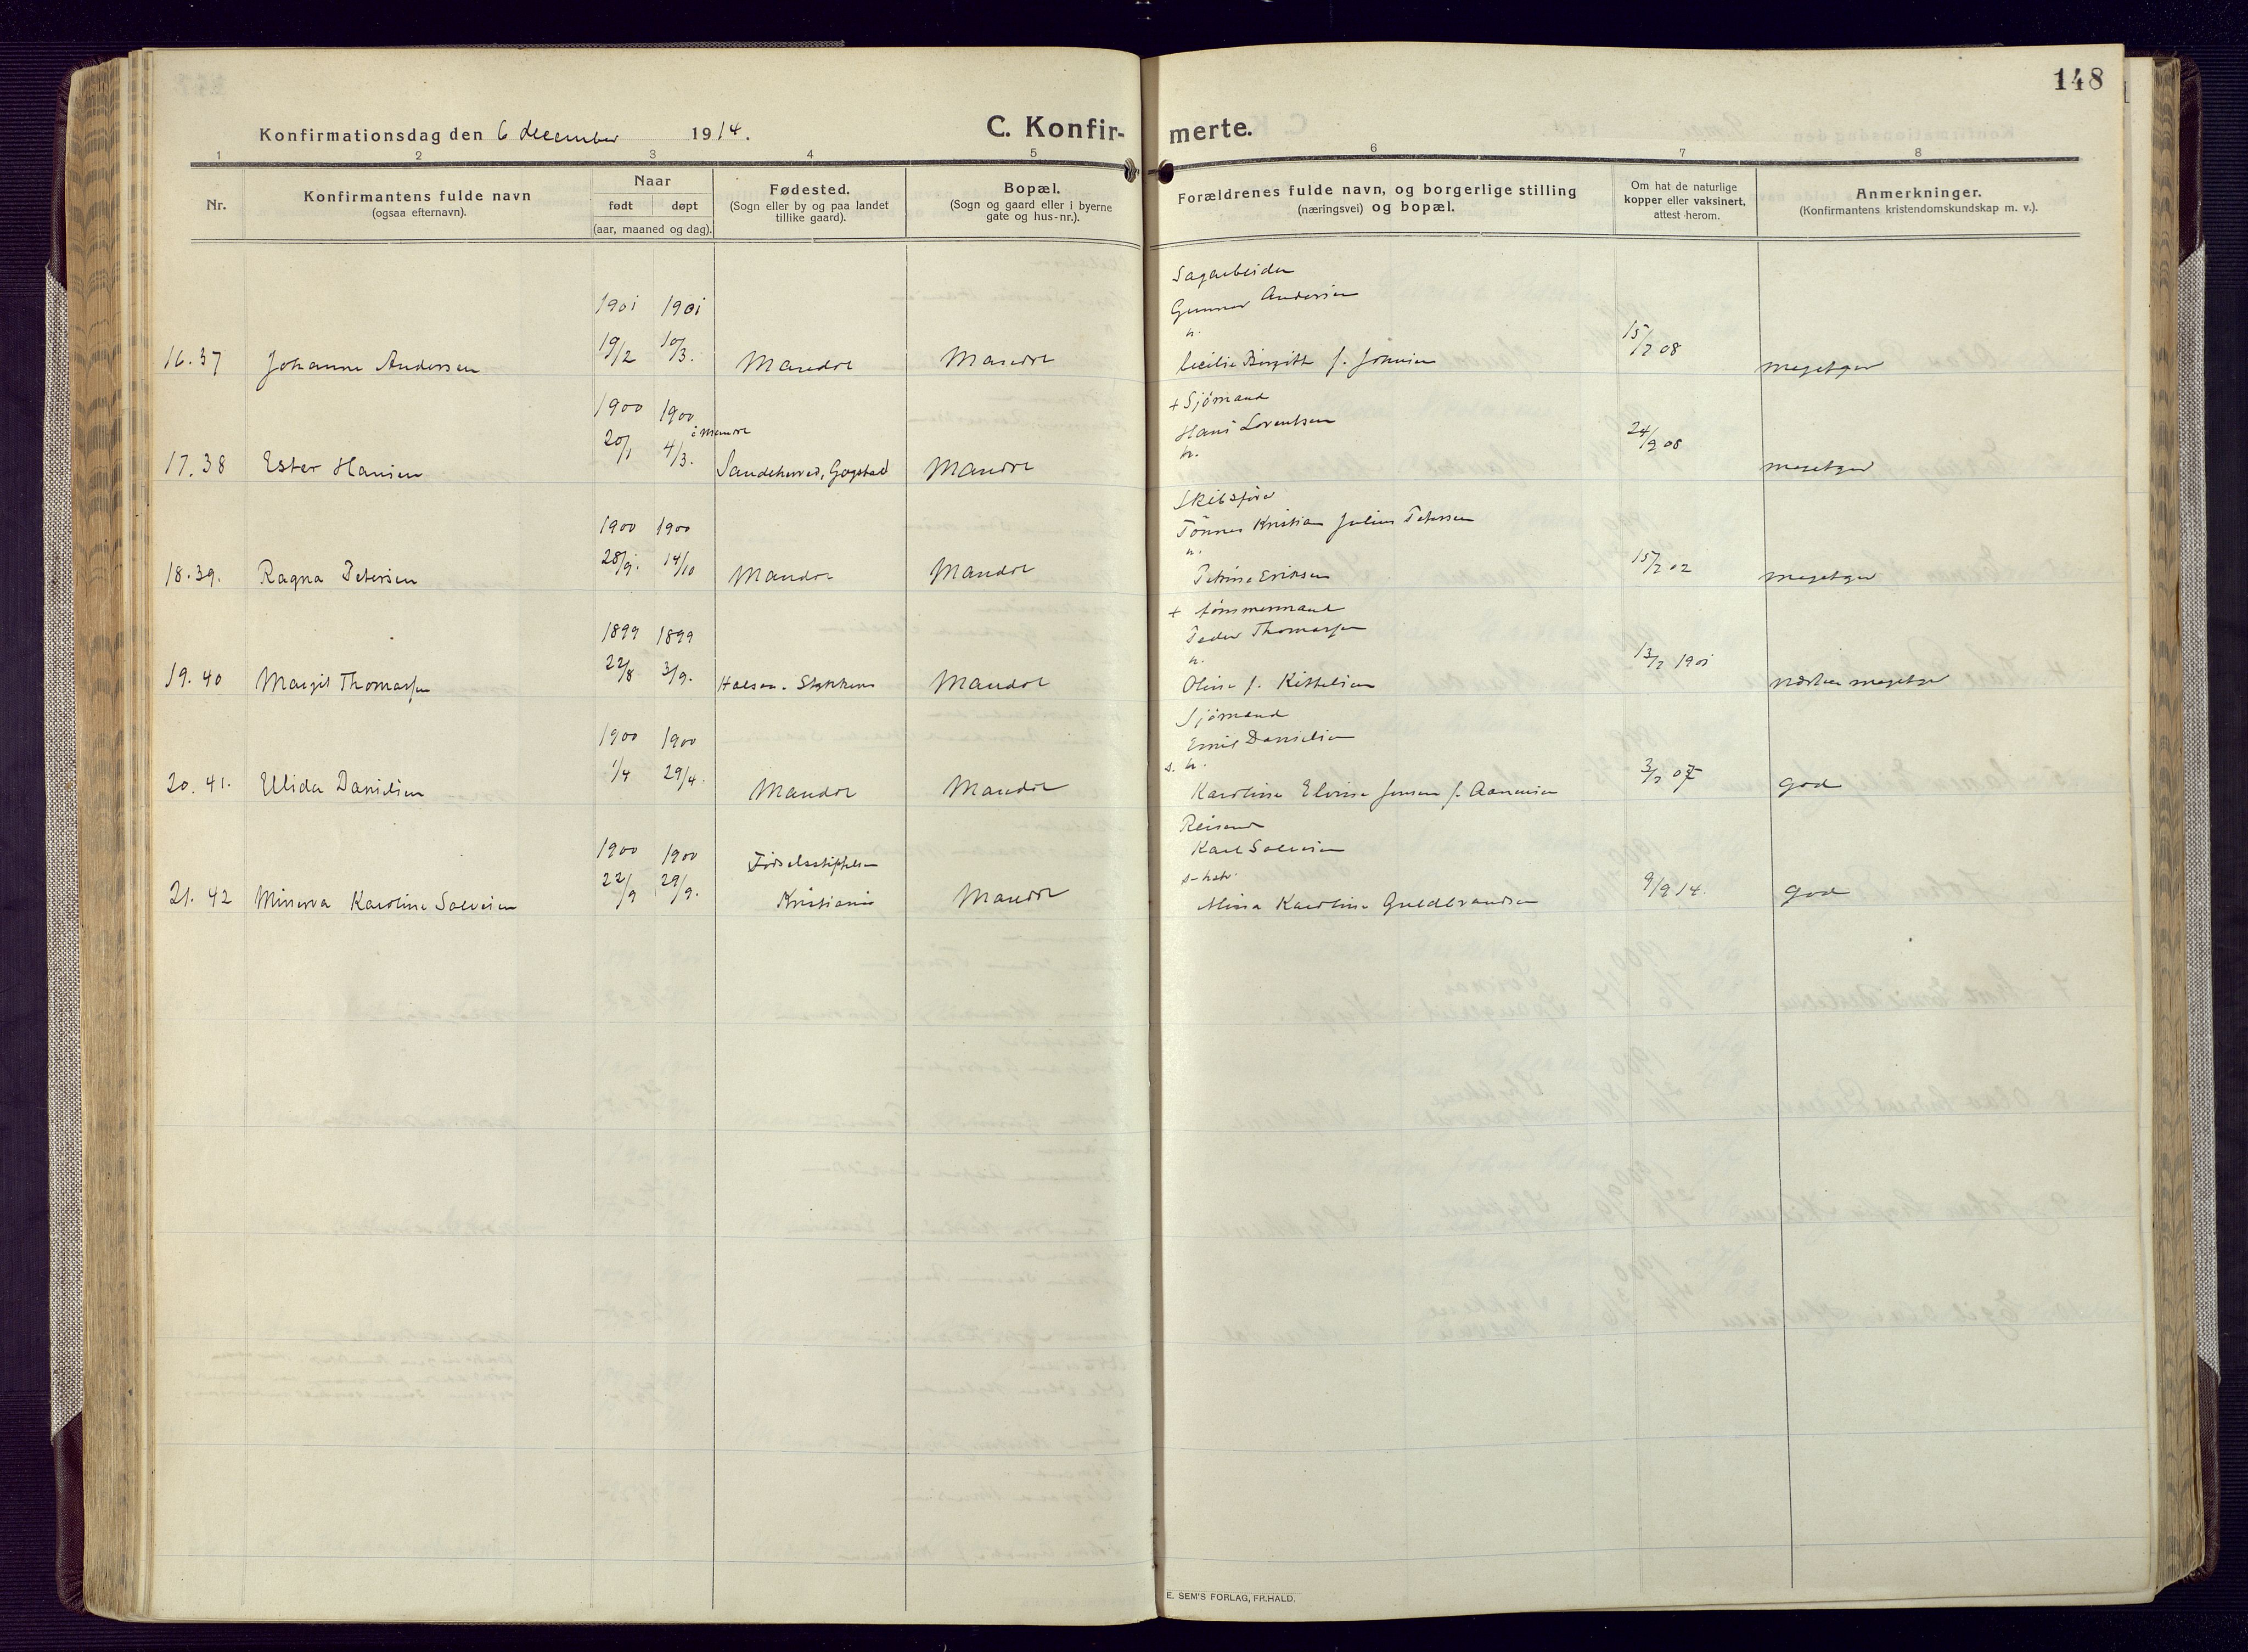 148
Konfirmationsdag den 6 december 1914.
C. Konfir-
merte.
1 2 3 4 5 6 7 8
Nr.
Konfirmantens fulde navn
(ogsaa efternavn).
Naar
født døpt
(aar, maaned og dag).
Fødested.
(Sogn eller by og paa landet
tillike gaard).
Bopæl.
(Sogn og gaard eller i byerne
gate og hus-nr.).
Forældrenes fulde navn, og borgerlige stilling
(næringsvei) og bopæl.
Om hat de naturlige
kopper eller vaksinert,
attest herom.
Anmerkninger.
(Konfirmantens kristendomskundskap m. v.).
Sagarbeider
1901 1901 Gunnar Andersen
h.
16. 37 Johanne Andersen 19/2 10/3. Mandal Mandal Cecilie Birgitte f. 15/2 08 megetgod
1900 1900 + Sjömand
i Mandal Hans Lorentsen
17. 38 Ester Hansen 20/1 4/3. Sandeherred, Gogstad Mandal h. 24/9 08 megetgod
Skibsförer
1900 1900 Tönnes Kristian Julius Petersen
h.
18. 39. Ragna Petersen 28/9. 14/10 Mandal Mandal Petrine Eriksen 15/2 02 megetgod
+ tömmermand
1899 1899 Peder Thomassen
h.
19. 40 Margit Thomassen 22/8 3/9. Halsaa. Stykkene Mandal Oline f. Kittelsen 13/2 1901 næsten megetgod
Sjömand
1900 1900 Emil Danielsen
s. h.
20. 41. Ellida Danielsen 1/4 29/4. Mandal Mandal Karoline Elvine Jensen f. Aanensen 3/2 07 god
Reisende
1900 1900 Födselsstiftelsen Karl Salvesen
21. 42 Minerva Karoline Salvesen 22/9 29/9. Kristiania Mandal Karoline Guldbrandsen 9/9 14. god
E. SEM'S FORLAG, FR.HALD.